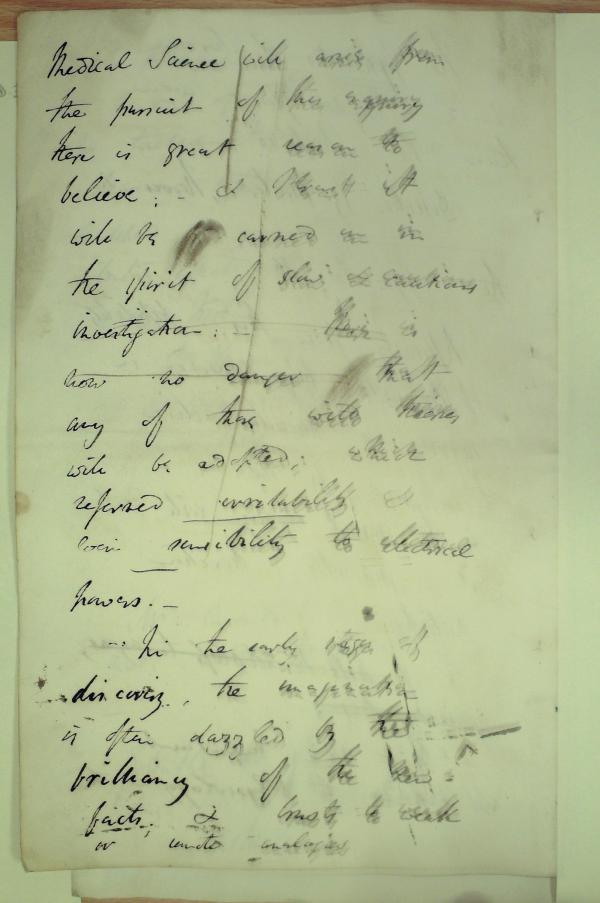 Medical Science will arise from
the pursuit of this enquiry
there is great reason to
believe; - & I trust it
will be carried on in
the spirit of slow & cautious
investigation: - There is
now no danger that
any of those wild theories
will be adopted; which
referred irritability &
even sensibility to electrical
powers. -
In the early stages of
discovery, the imagination
is often dazzled by the
brilliancy of the new
facts; & trusts to weak
or remote analogies